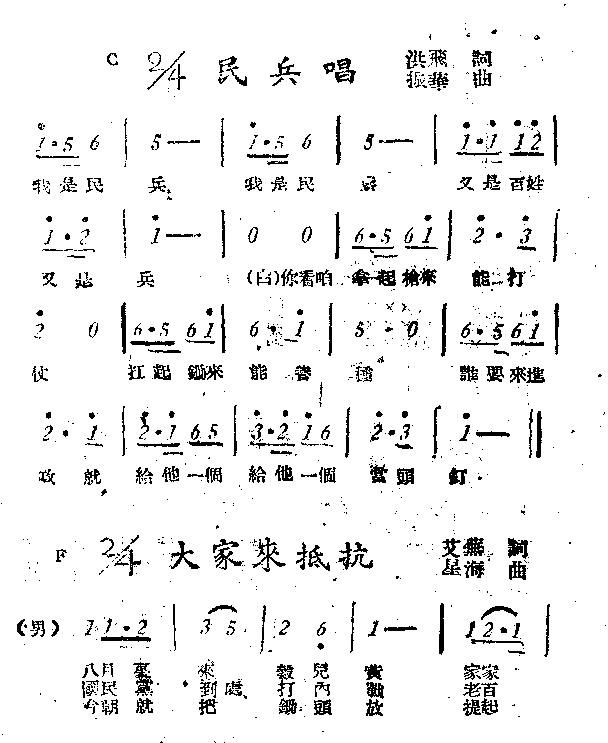 C 2/4 民兵唱 洪飛 詞
振華 曲
1·5 6 | 5— | 1·5 6 | 5— | 1·1 12
我是民 兵 我是民 兵 又是百姓
1·2 | 1— | 0 0 | 6·5 61 | 2·3
又是 兵 (白)你看咱 拿起槍來 能打
2 0 | 6·5 61 | 6·1 | 5·0 | 6·5 61
仗 扛起鋤來 能養 種 誰要來進
2·1 | 2·1 65 | 3·2 16 | 2·3 | 1— ||
攻就 給他一個 給他一個 當頭 釘
F 2/4 大家來抵抗 艾蕪 詞
星海 曲
(男) 1 1·2 | 3 5 | 2 6 | 1— | 1 2·1 |
八月裏 來 穀兒 黃 家家
國民黨 到處 打內 戰 老百
今朝就 把 鋤頭 放 提起